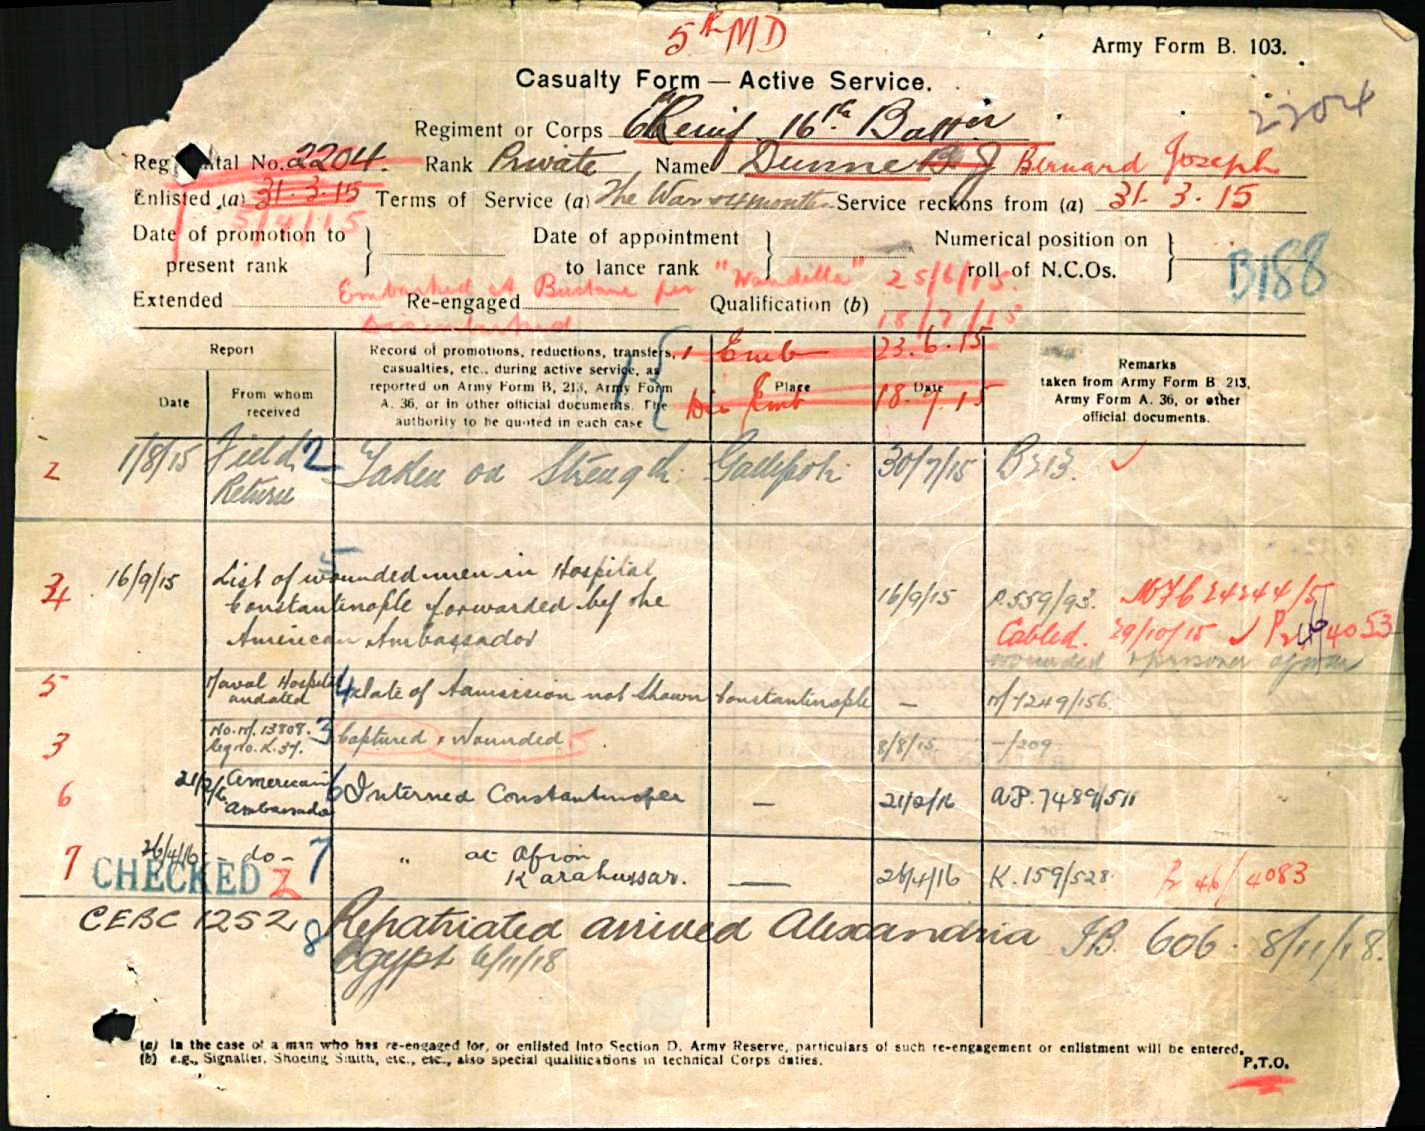 5th MD
Army Form B. 103.
Casualty Form — Active Service.
2204
Regiment or Corps 16th Battn
Regimental No. 2204 Rank Private Name Dunne B J Bernard Joseph
Enlisted (a) 31-3-15 Terms of Service (a) The War & 4 months Service reckons from (a) 31-3-15
5/4/15
Date of promotion to present rank
Date of appointment to lance rank
Numerical position on roll of N.C.Os.
B188
Embarked at per "Wandilla" 25/6/15.
Extended Re-engaged Qualification (b)
Disembarked 18/7/15
Report
Date
From whom received
Record of promotions, reductions, transfers, casualties, etc., during active service, as reported on Army Form B, 213, Army Form A. 36, or in other official documents. The authority to be quoted in each case
Place
Date
Remarks
taken from Army Form B 213, Army Form A. 36, or other official documents.
1 Emb 23.6.15
Dis Emb 18.7.15
2 1/8/15 Field Return 2 Taken on Strength Gallipoli 30/7/15 B213.
4 16/9/15 5 List of wounded men in Hospital 16/9/15 P.559/93.
Constantinople forwarded by the Cabled. 29/10/15
American Ambassador wounded & prisoner of war
5 Naval Hospital undated 4 date of Admission not Shown Constantinople —
3 3 Captured & Wounded 5 8/8/15. -/209
6 21/2/16 American Ambassador 6 Interned Constantinople — 21/2/16 A.P. 7489/511
7 26/4/16 - do - 7 " at Afion Karahussar. — 26/4/16 K.159/528
CHECKED
CEBC 1252 8 Repatriated arrived Alexandria 606. 8/11/18.
Egypt 6/11/18
(a) In the case of a man who has re-engaged for, or enlisted into Section D. Army Reserve, particulars of such re-engagement or enlistment will be entered.
(b) e.g., Signaller, Shoeing Smith, etc., etc., also special qualifications in technical Corps duties.
P.T.O.